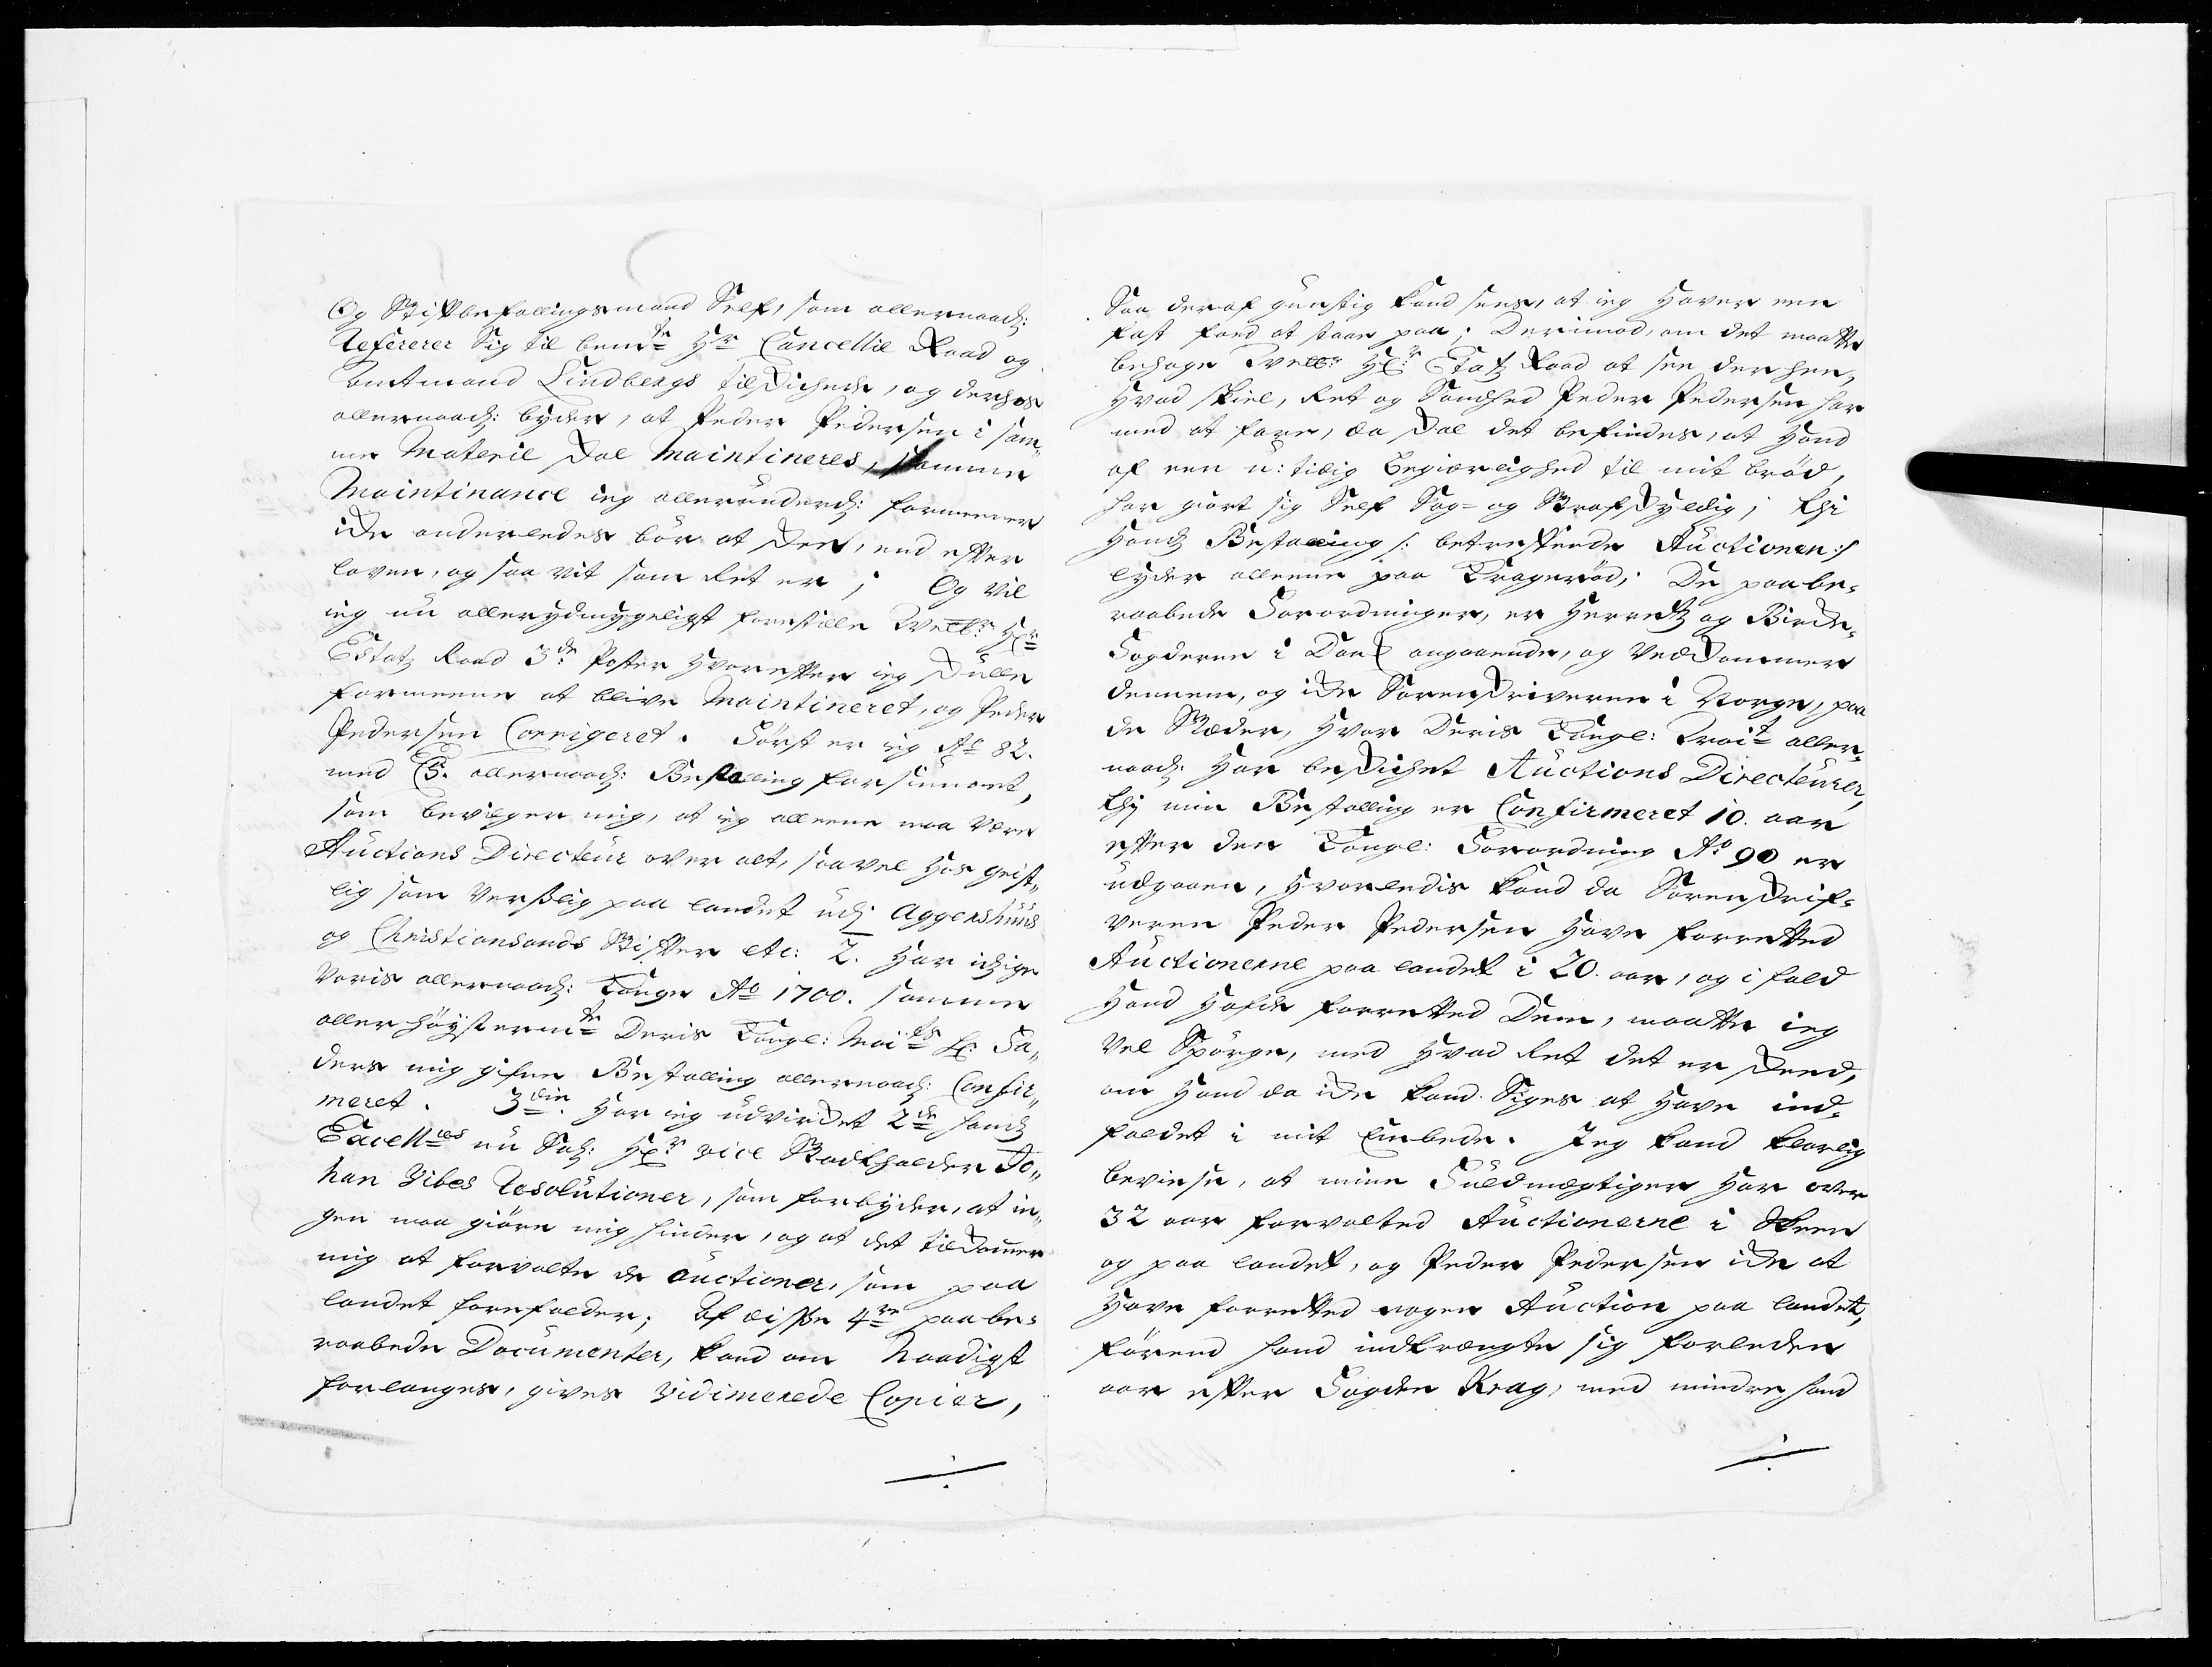 Og Stiftbefallingsmand Self, som allernaadg:
Refererer Sig til bemte Hr Cancellie Raad og
Amtmand Lindbergs tilskichede, og derhos
allernaadg: byder, at Peder Pedersen i sam„
me Materie skal Maintineres, samme
Maintinance ieg allerunderdg: formeener
icke anderledes bör at skee, end effter
loven, og saa vit som Ret er; Og vil
ieg nu allerydmygeligst forestille Welb: Hr
Estatz Raad 3de Poster hvoreffter ieg skulle
formeene at blive Maintineret, og Peder
Pedersen Corrigeret. Först er ieg Ao 82.
med C5. allernaadg: Bestalling forsiunet,
som bevilger mig, at ieg alleene maa være
Auctions Directeur over alt, saavel hos geist„
lig som Verslig paa landet udj Aggershuus
og Christiansands Stiffter etc: 2. Har ichige
Voris allernaadg: Konge Ao 1700. samme
aller höysterm̄te Deris Kongl: Maits Hr: Fa„
ders mig gifne Bestalling allernaadg: Confir„
meret. 3die. Har ieg udvircket 2de hands
Excellces nu Sal: Hr vice Stadtholder Jo„
han Vibes Resolutioner, som forbyder, at in„
gen maa giöre mig hinder, og at det tilkommer
mig at forvalte de Auctioner, som paa
landet forefalder; Af disse 4re paabe=
raabede Documenter, kand om Naadigst
forlanges, gives Vidimerede Copier,
Saa deraf gunstig kand sees, at ieg haver een
fast foed at staae paa; Derimod, om det maatte
behage Welb: Hr: Etatz Raad at see der hen,
hvad skiel, Ret og Sandhed Peder Pedersen har
med at fare, da skal det befindes, at hand
af een u:tidig begiærlighed til mit bröd,
har giort sig Self Sag= og Strafskyldig; thi
hands Bestalling /: betreffende Auctionen :/
lyder alleene paa Kragerød; De paabe=
raabede Forordninger, er Herretz og Bircke=
Fogderne i Danm: angaaende, og vedkommer
dennem, og icke Sorenskriverne i Norge, paa
de Stæder, hvor Deris Kongl: Mait aller„
naadg: har beskichet Auctions Directeurer,
thj min Bestalling er Confirmeret 10. aar
effter den Kongl: Forordning Ao 90 er
udgaaen, hvorledis kand da Sorenskrif=
veren Peder Pedersen have forretted
Auctionerne paa landet i 20. aar, og i fald
hand hafde forretted Dem, maatte ieg
vel Spörge, med hvad Ret det er skeed,
om hand da icke kand Siges at have ind=
faldet i mit Embede. Jeg kand klarlig
beviise, at mine Fuldmægtiger har over
32 aar forvalted Auctionerne i Skeen
og paa landet, og Peder Pedersen icke at
have forretted nogen Auction paa landet,
förend hand indtrængte sig forleden
aar effter Fogden Krag, med mindre hand